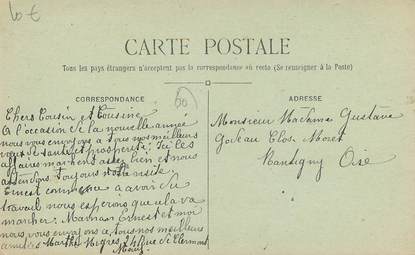 10 €
CARTE POSTALE
Tous les pays étrangers n'acceptent pas la correspondance au recto (Se renseigner à la Poste)
CORRESPONDANCE
60
ADRESSE
Chers Cousin et Cousine
A l'occasion de la nouvelle année
nous vous envoyons a tous nos meilleurs
voeux de santé et prosperité. Ici les
affaires marchent assez bien et nous
attendons toujours votre visite
Ernest commence a avoir du
travail nous esperons que cela va
marcher. Maman Ernest et moi
nous vous envoyons a tous nos meilleurs
amitiés Marthe 24 Rue de Clermont
Monsieur Madame Gustave
Clos Moret
Rantigny Oise